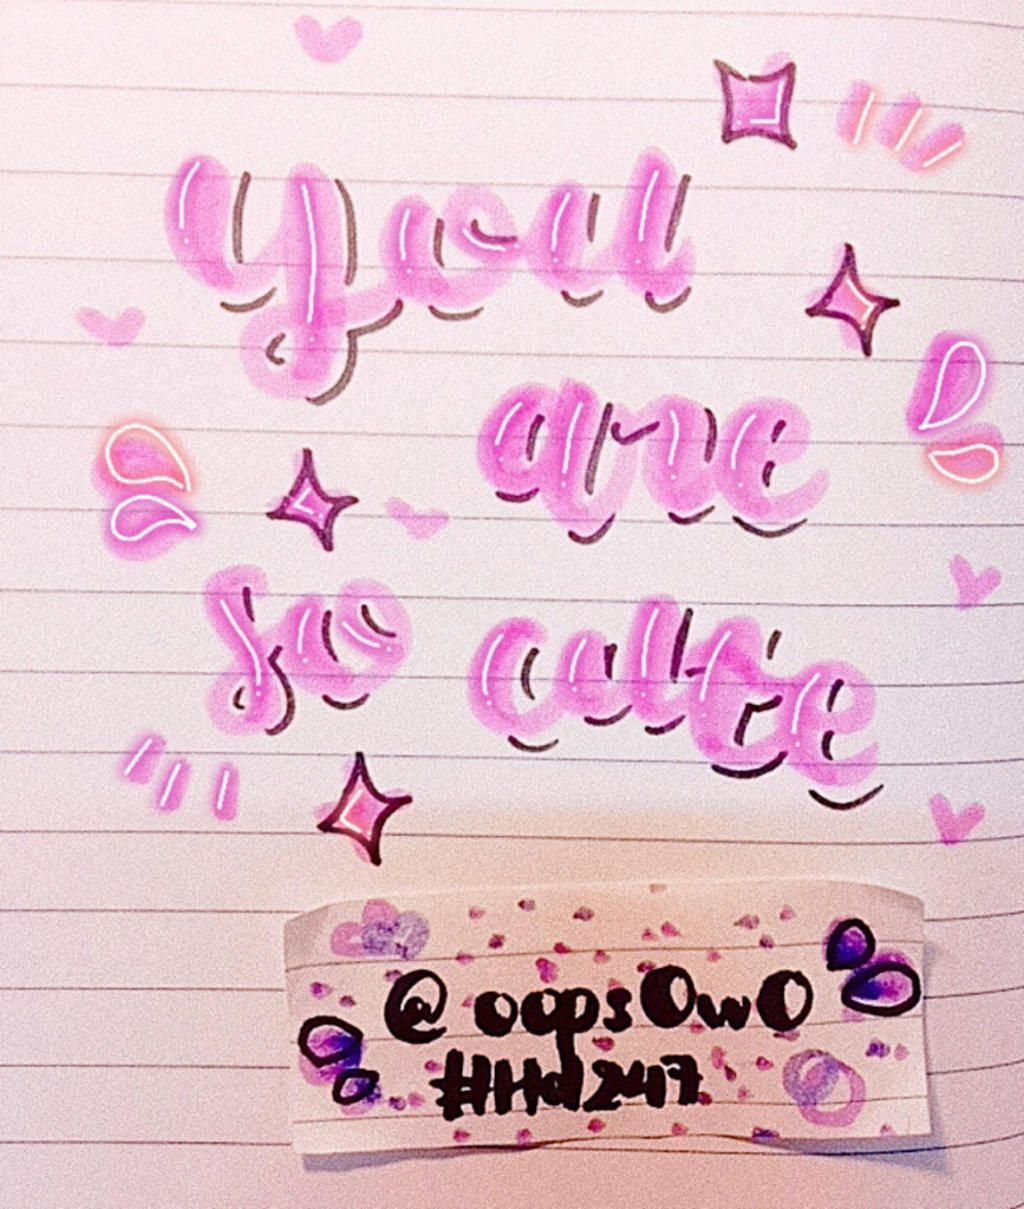 you
are
so cute
@oopsOwO
#Hd247